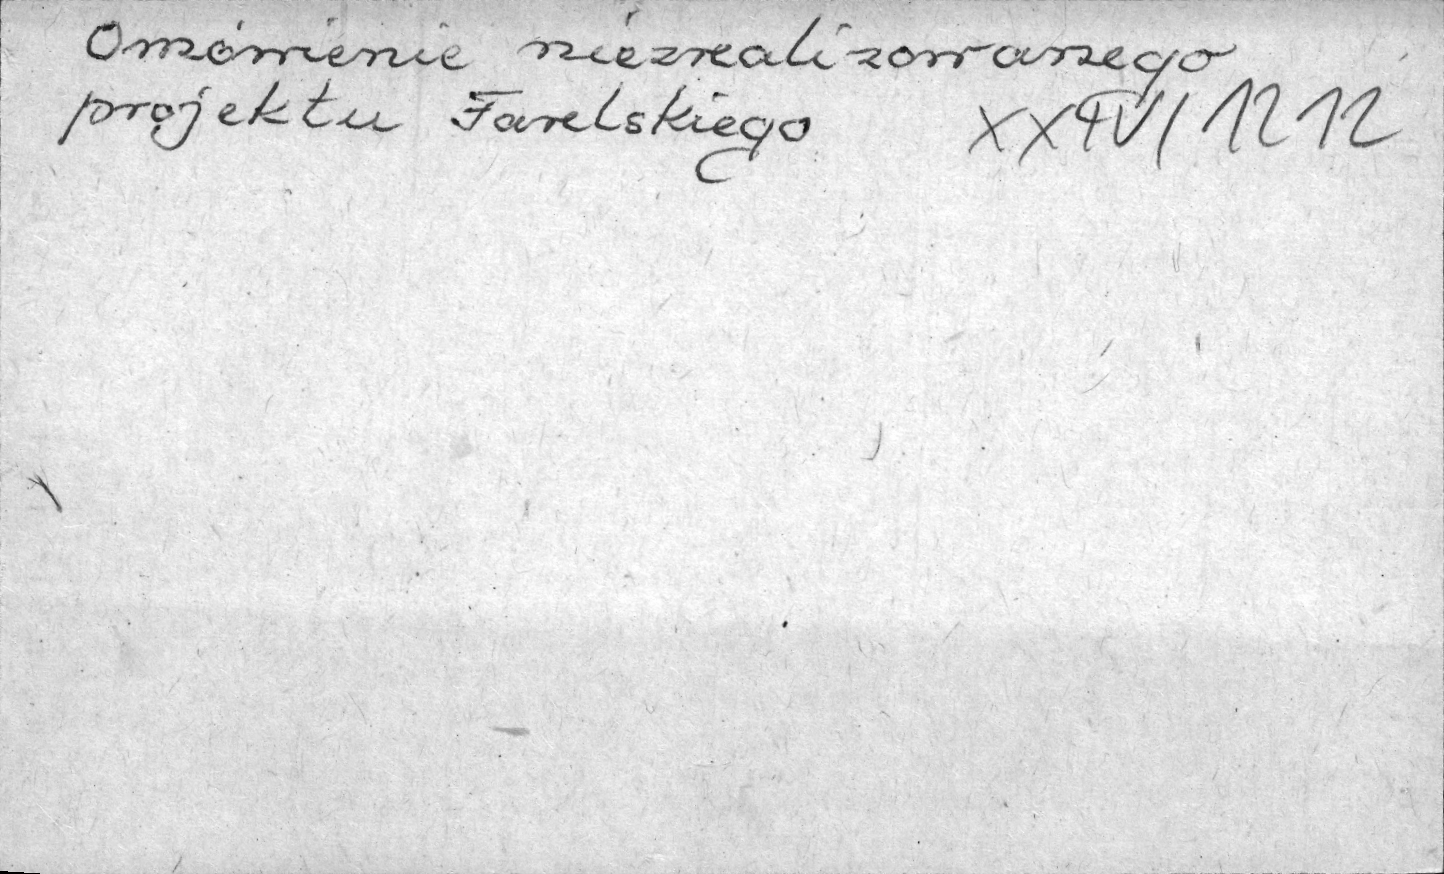 Omówienie niezrealizowanego
projektu Farelskiego XXIV/1212